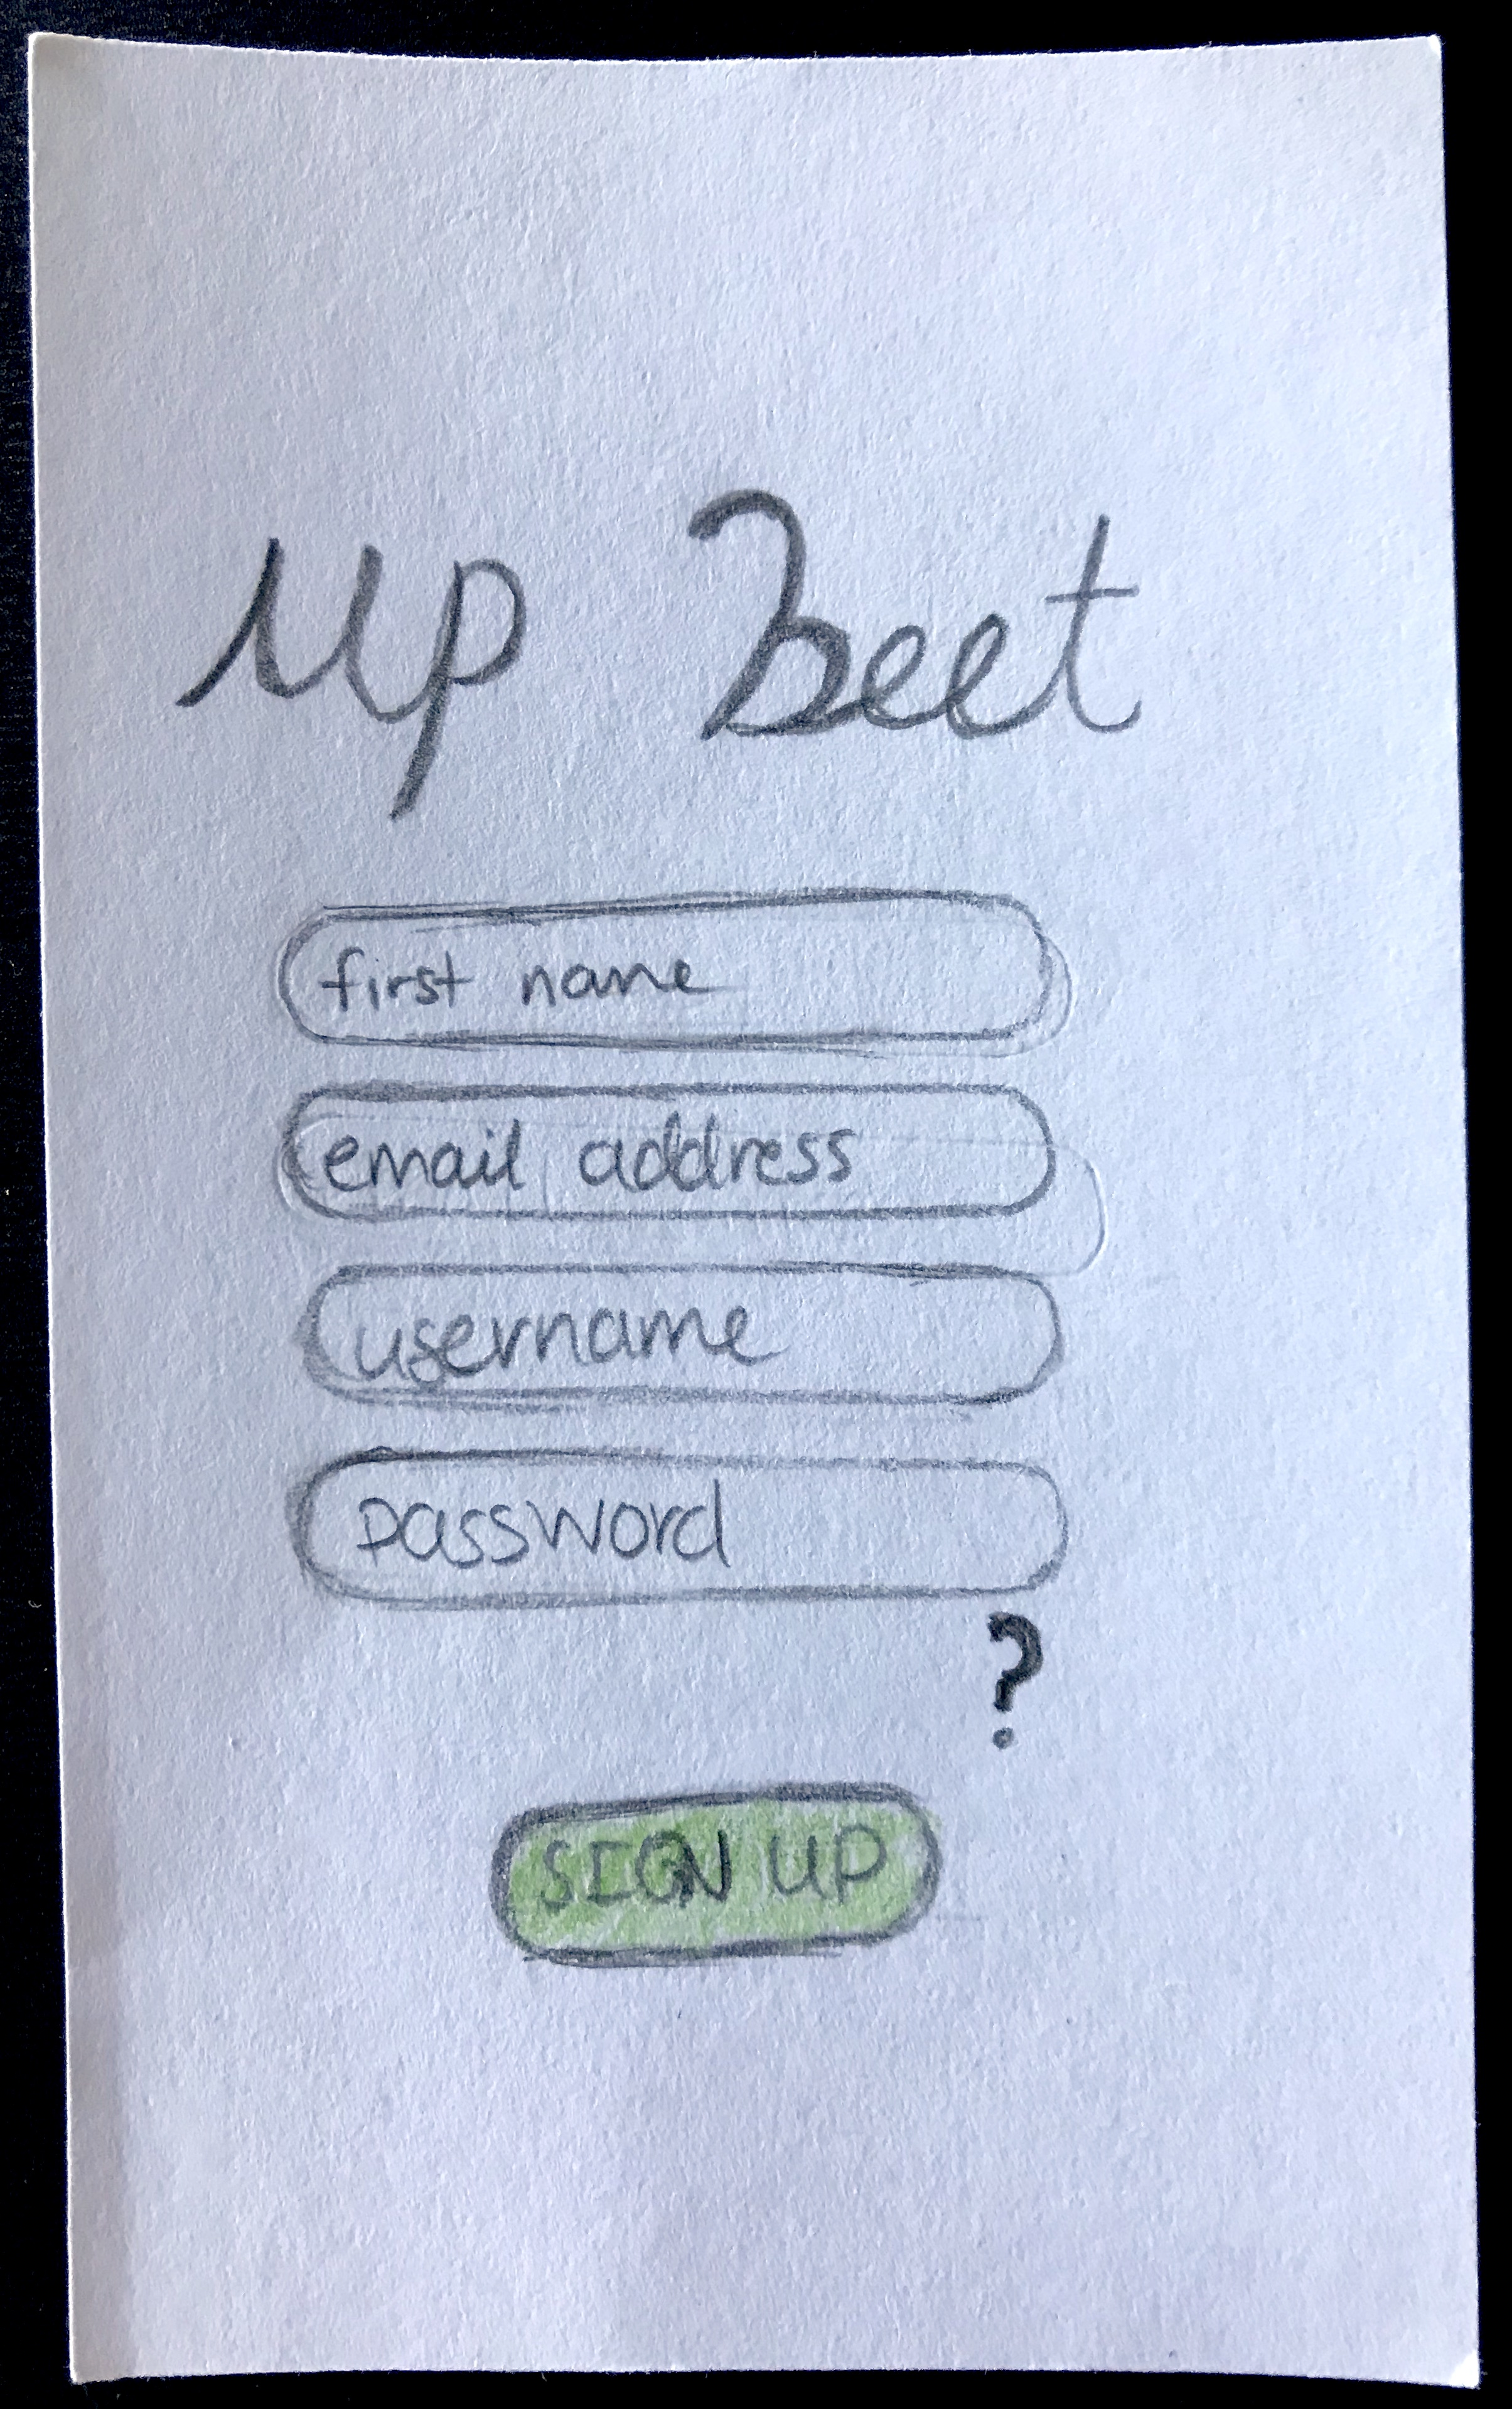 Up Beet
first name
email address
username
password
?
SIGN UP